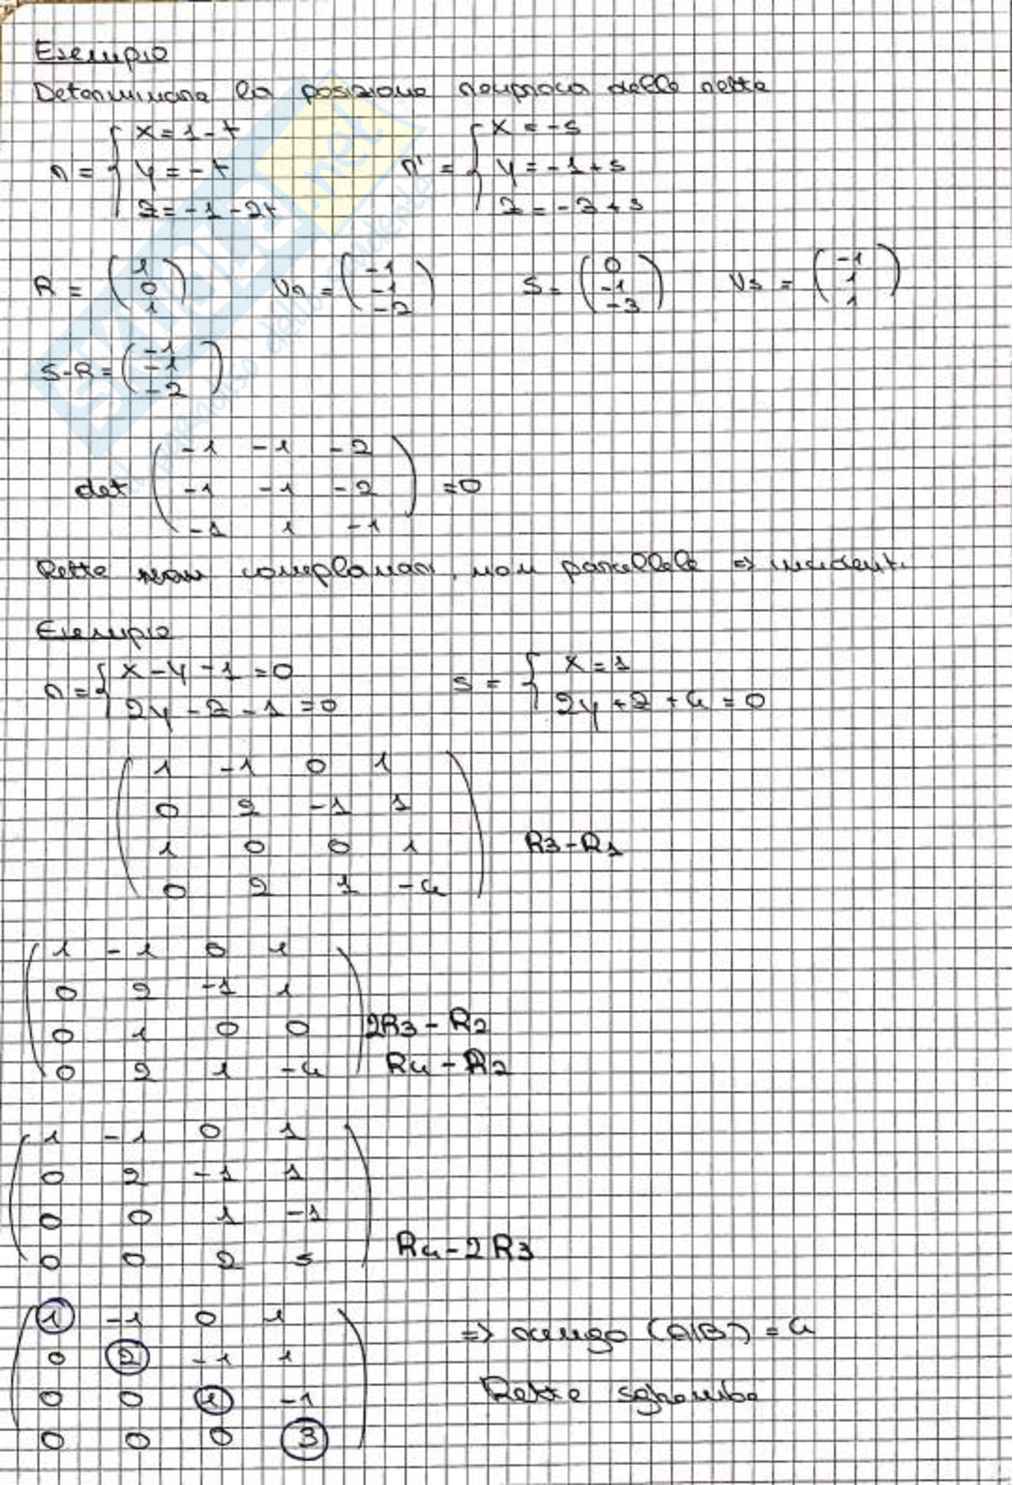 Esempio
Determinare la posizione reciproca delle rette
r = { x = 1 - t
y = -t
z = -1 - 2t
r' = { x = -s
y = -1 + s
z = -3 + s
R = ( 1 0 1 ) Vr = ( -1 -1 -2 ) S = ( 0 -1 -3 ) Vs = ( -1 1 1 )
S-R = ( -1 -1 -2 )
det ( -1 -1 -2
-1 -1 -2
-1 1 -1 ) = 0
Rette complanari, non parallele => incidenti
Esempio
r = { x - y - 1 = 0
2y - z - 1 = 0
s = { x = 1
2y + z + 4 = 0
1 -1 0 1
0 2 -1 1
1 0 0 1 R3-R1
0 2 1 -4
1 -1 0 1
0 2 -1 1
0 1 0 0 2R3 - R2
0 2 1 -4 R4 - R2
1 -1 0 1
0 2 -1 1
0 0 1 -1
0 0 2 5 R4 - 2R3
1 -1 0 1 => rango (A|B) = 4
0 2 -1 1
0 0 1 -1 Rette sghembe
0 0 0 3